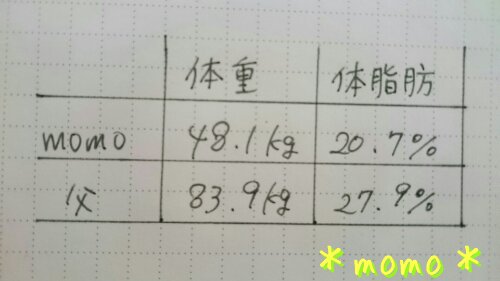 体重 体脂肪
momo 48.1kg 20.7%
父 83.9kg 27.9%
*momo*